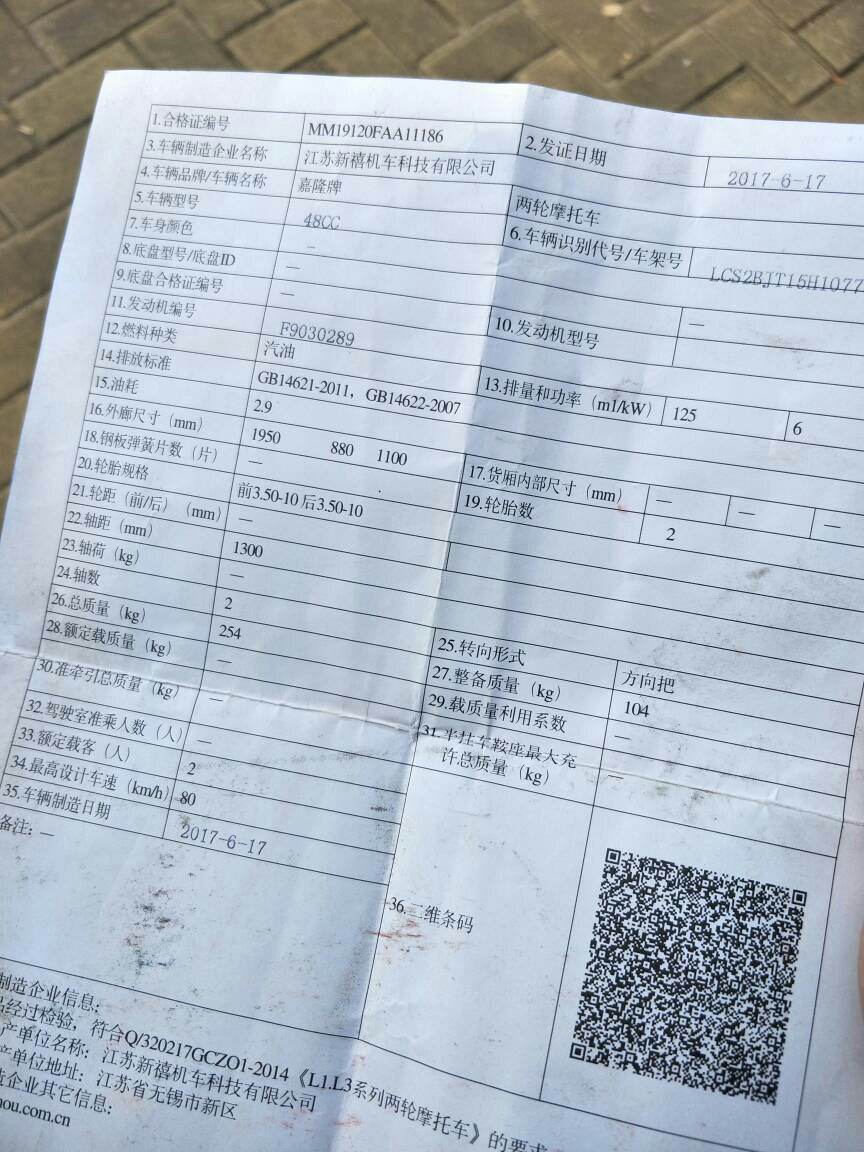 1.合格证编号 MM19120FAA11186 2.发证日期 2017-6-17
3.车辆制造企业名称 江苏新禧机车科技有限公司
4.车辆品牌/车辆名称 嘉隆牌 两轮摩托车
5.车辆型号 48CC 6.车辆识别代号/车架号 LCS2BJT15H1077
7.车身颜色 —
8.底盘型号/底盘ID —
9.底盘合格证编号 — 10.发动机型号 —
11.发动机编号 F9030289
12.燃料种类 汽油 13.排量和功率（ml/kW） 125 6
14.排放标准 GB14621-2011，GB14622-2007
15.油耗 2.9
16.外廊尺寸（mm） 1950 880 1100 17.货厢内部尺寸（mm） — — —
18.钢板弹簧片数（片） — 19.轮胎数 2
20.轮胎规格 前3.50-10 后3.50-10
21.轮距（前/后）（mm） —
22.轴距（mm） 1300
23.轴荷（kg） —
24.轴数 2 25.转向形式 方向把
26.总质量（kg） 254 27.整备质量（kg） 104
28.额定载质量（kg） — 29.载质量利用系数 —
30.准牵引总质量（kg） — 31.半挂车鞍座最大允
许总质量（kg） —
32.驾驶室准乘人数（人） —
33.额定载客（人） 2
34.最高设计车速（km/h） 80
35.车辆制造日期 2017-6-17
备注：— 36.二维条码
制造企业信息：
经过检验，符合Q/320217GCZO1-2014《L1.L3系列两轮摩托车》的要求
产单位名称：江苏新禧机车科技有限公司
产单位地址：江苏省无锡市新区
造企业其它信息：
ou.com.cn